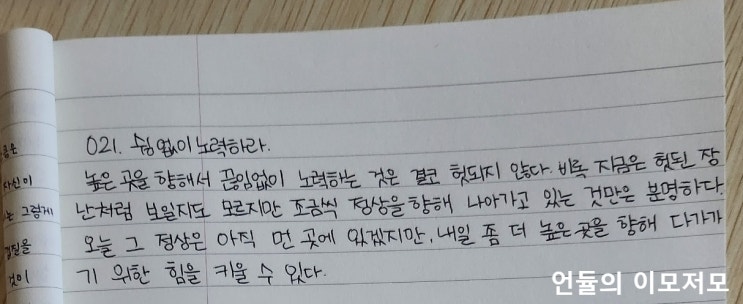 021. 쉼없이 노력하라.
높은 곳을 향해서 끊임없이 노력하는 것은 결코 헛되지 않다. 비록 지금은 헛된 장
난처럼 보일지도 모르지만 조금씩 정상을 향해 나아가고 있는 것만은 분명하다.
오늘 그 정상은 아직 먼 곳에 있겠지만, 내일 좀 더 높은 곳을 향해 다가가
기 위한 힘을 키울 수 있다.
자신이
는 그렇게
것이
언듈의 이모저모